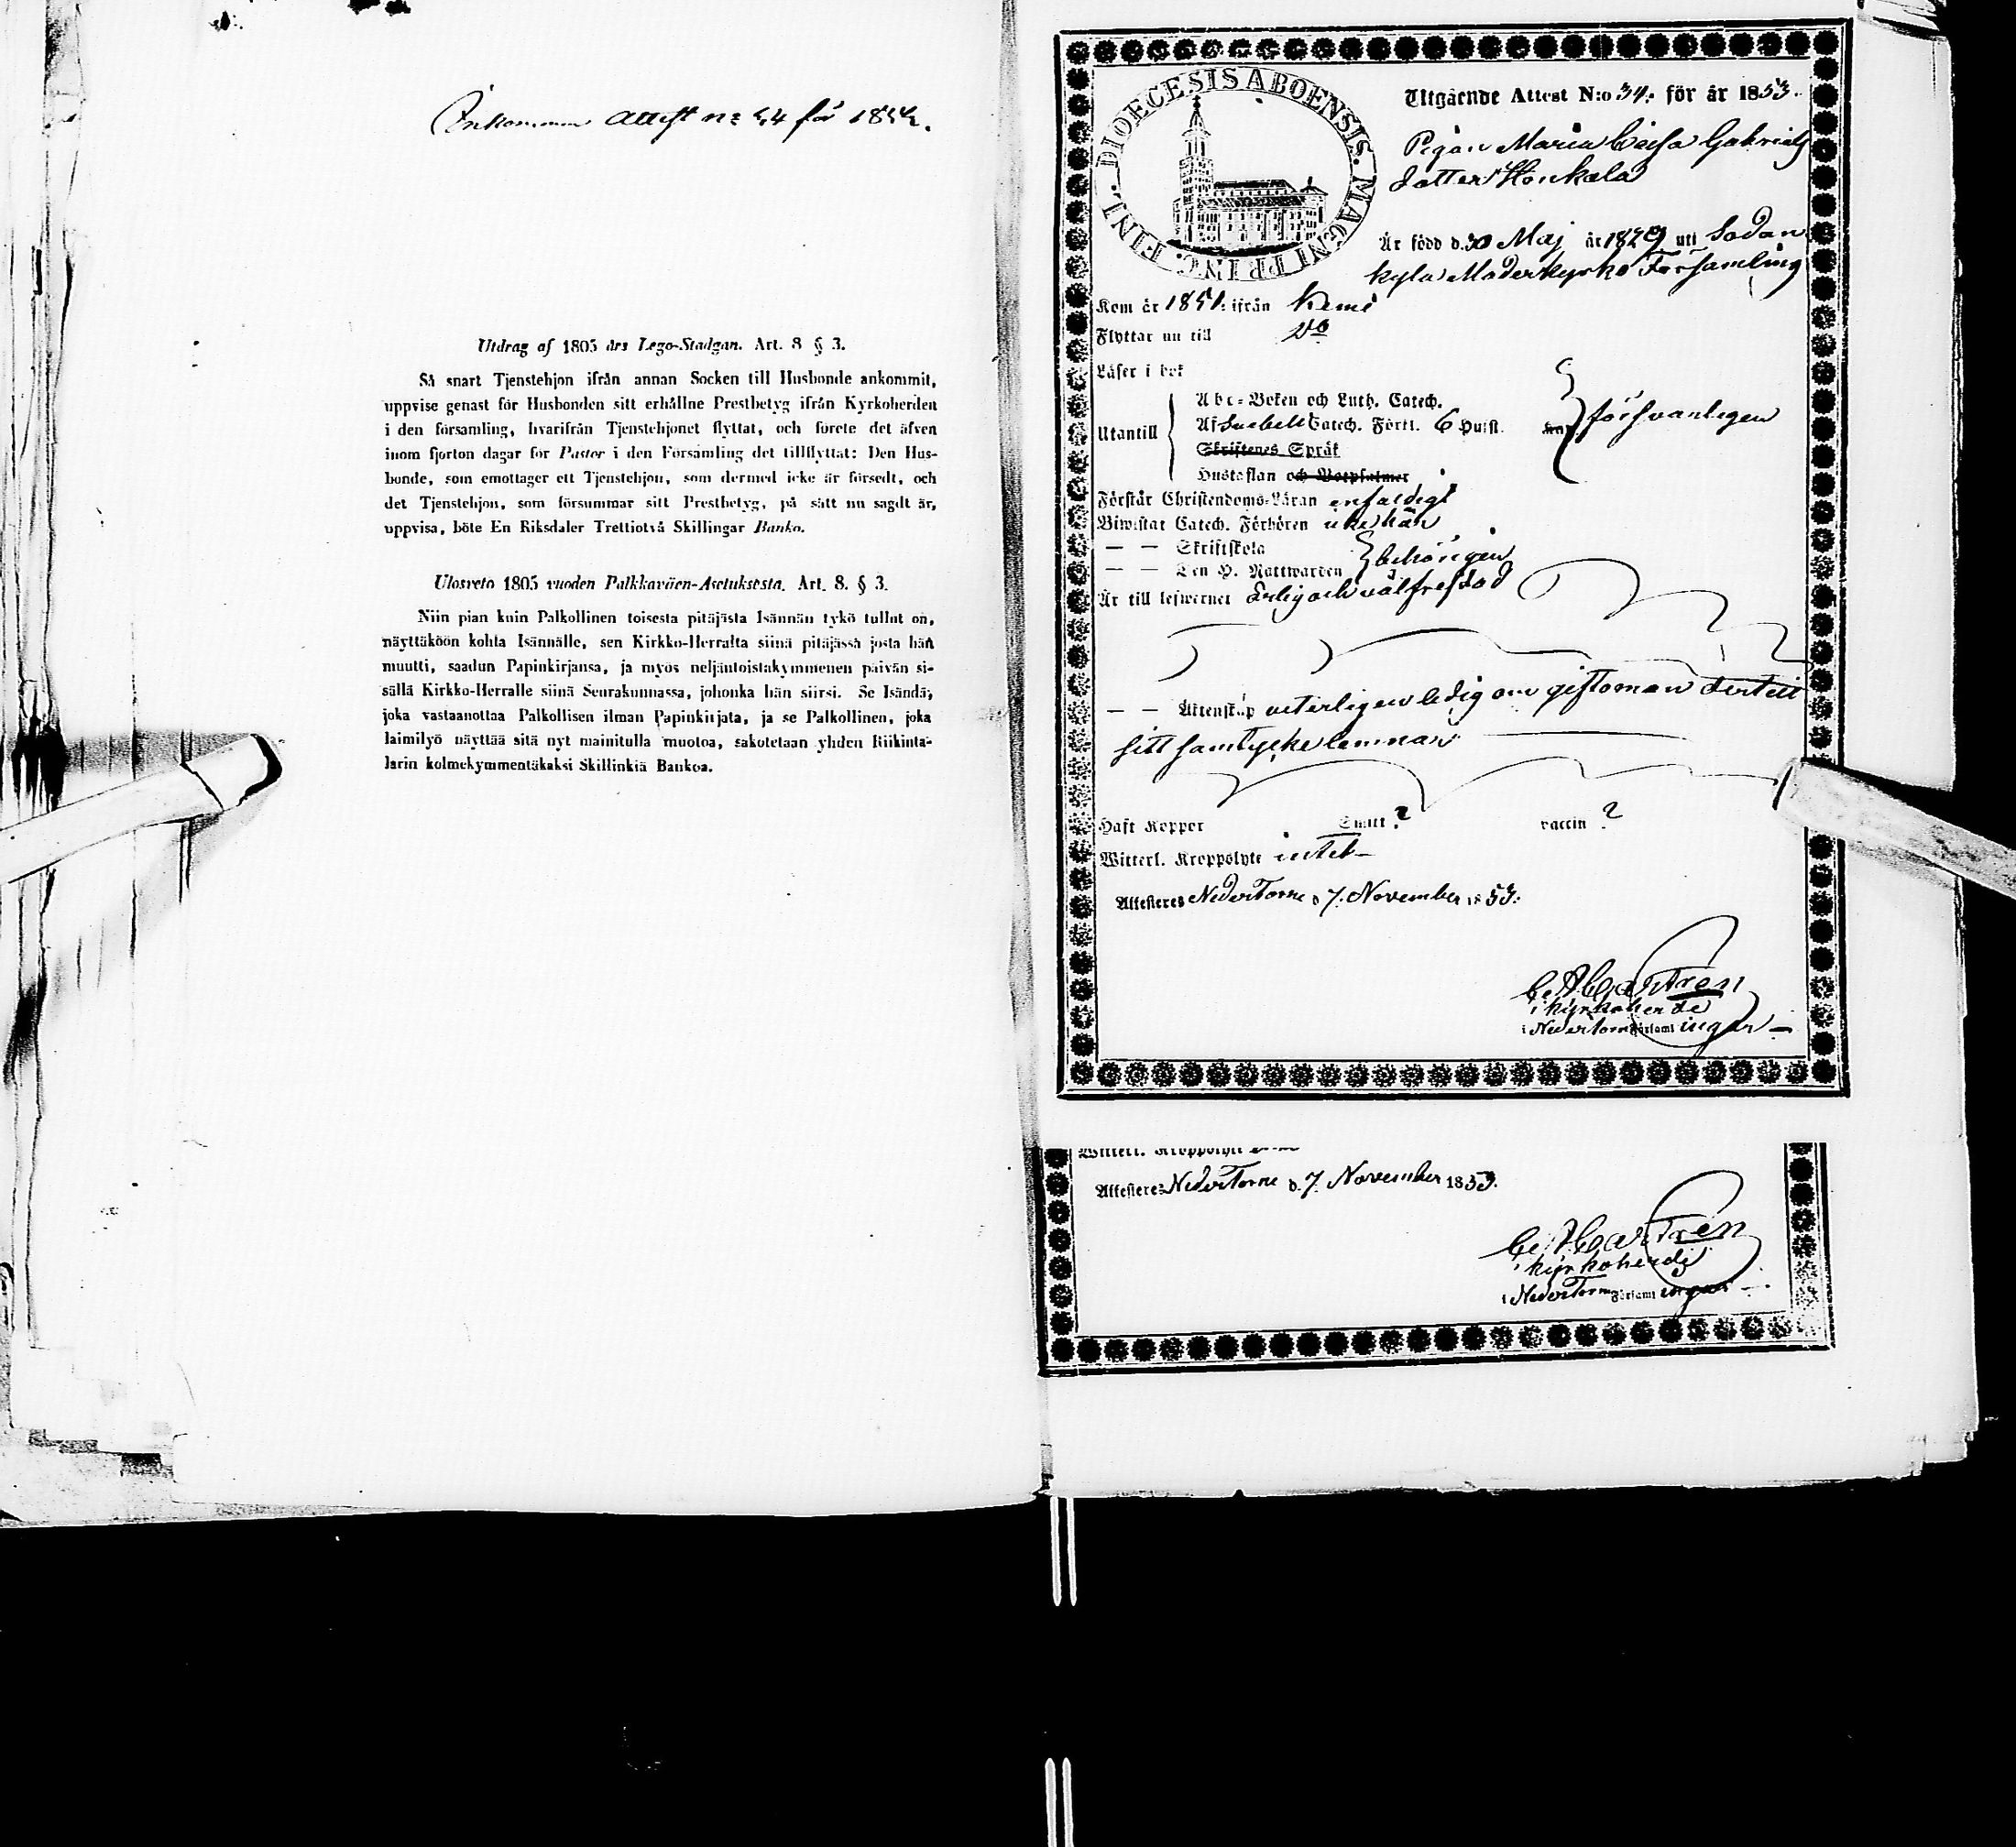 Inkommen Attest No 54 för 1854.
Utdrag af 1805 års Lego-Stadgan. Art. 8 § 3.
Så snart Tjenstehjon ifrån annan Socken till Husbonde ankommit,
uppvise genast för Husbonden sitt erhållne Prestbetyg ifrån Kyrkoherden
i den församling, hvarifrån Tjenstehjonet flyttat, och förete det äfven
inom fjorton dagar för Pastor i den Församling det tillflyttat: Den Hus-
bonde, som emottager ett Tjenstehjon, som dermed icke är försedt, och
det Tjenstehjon, som försummar sitt Prestbetyg, på sätt nu sagdt är,
uppvisa, böte En Riksdaler Trettiotvå Skillingar Banko.
Ulosveto 1805 vuoden Palkkaväen-Asetuksesta. Art. 8. § 3.
Niin pian kuin Palkollinen toisesta pitäjästä Isännän tykö tullut on,
näyttäköön kohta Isännälle, sen Kirkko-Herralta siinä pitäjässä josta hän
muutti, saadun Papinkirjansa, ja myös neljäntoistakymmenen päivän si-
sällä Kirkko-Herralle siinä Seurakunnassa, johonka hän siirsi. Se Isändä,
joka vastaanottaa Palkollisen ilman Papinkirjata, ja se Palkollinen, joka
laimilyö näyttää sitä nyt mainitulla muotoa, sakotetaan yhden Riikinta-
larin kolmekymmentäkaksi Skillinkiä Bankoa.
DIOECESIS ABOENSIS. MAGNI PRINC. FINL.
Utgående Attest N:o 34. för år 1853.
Pigan Maria Caisa Gabriels
dotter Honkala
Är född d. 30 Maj år 1829 uti Sodan
kyla Moderkyrko Församling
Kom år 1851. ifrån Kemi
Flyttar nu till Do
Läser i bok
Abc-Boken och Luth. Catech.
Utantill Af Svebelii Catech. Förkl. 6 Hufst. försvarligen
Skriftenes Språk
Hustaflan och Botpsalmer
Förstår Christendoms-Läran enfaldigt
Biwistat Catech. Förhören
— — Skriftskola
— — Den H. Nattwarden behörigen
Är till lefwernet ärlig och välfrejdad
— — Äktenskap veterligen ledig om giftoman dertill
sitt samtycke lemnar
Haft Koppor Smitt ? vaccin ?
Witterl. Kroppslyte intet
Attesteres NederTorne d. 7. November 1853.
C. A. Castren
Kyrkoherde
i NederTorne Församlingar
Witterl. Kroppslyte
Attesteres NederTorne d. 7. November 1853.
C. A. Castren
Kyrkoherde
i NederTorne Församlingar